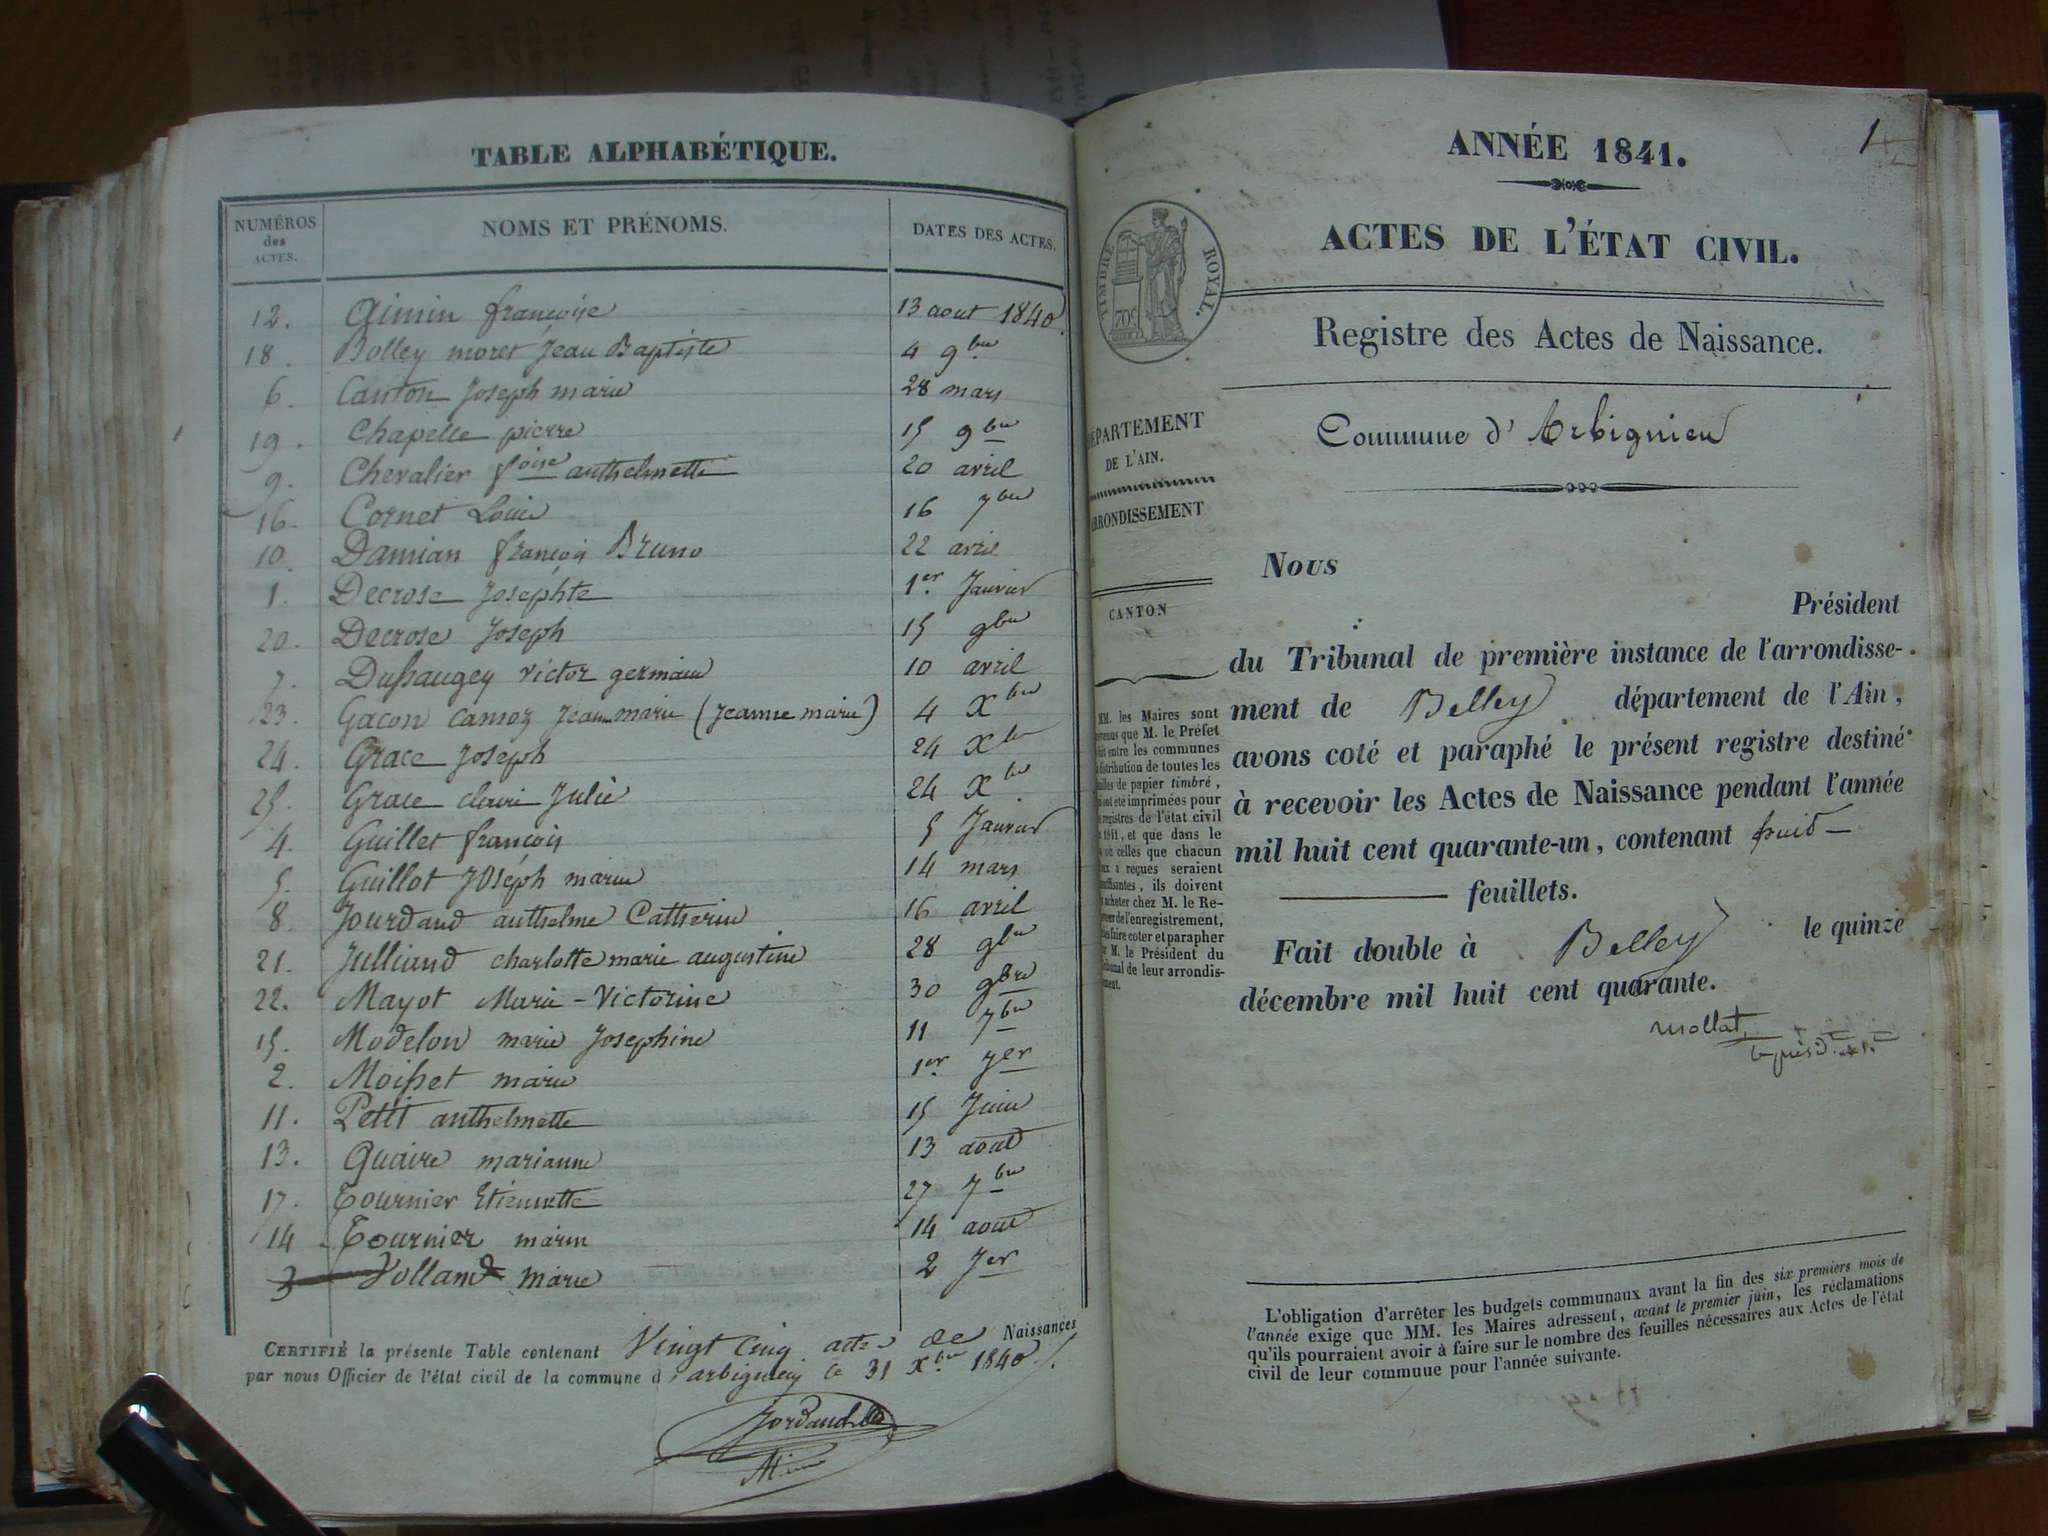 TABLE ALPHABÉTIQUE.
NUMÉROS des ACTES. NOMS ET PRÉNOMS. DATES DES ACTES.
12. Aimin françoise 13 aout 1840.
18. Bolley moret Jean Baptiste 4 9bre
6. Canton Joseph marie 28 mars
19. Chapelle pierre 15 9bre
9. Chevalier foise anthelmette 20 avril
16. Cornet Louise 16 7bre
10. Damian françois Bruno 22 avril
1. Decrose Josephte 1er Janvier
20. Decrose Joseph 15 9bre
7. Dussaugey victor germain 10 avril
23. Gacon camoz Jean marie (Jeanne marie) 4 Xbre
24. Grace Joseph 24 Xbre
25. Grace claire Julie 24 Xbre
4. Guillet françois 5 Janvier
5. Guillot Joséph marie 14 mars
8. Jourdand anthelme Catherin 16 avril
21. Julliand charlotte marie augustine 28 9bre
22. Mayot Marie-Victorine 30 9bre
15. Modelon marie Josephine 11 7bre
2. Moisset marie 1er Jer
11. Petit anthelmette 15 Juin
13. Quaire marianne 13 aout
17. Tournier Etiennette 27 7bre
14. Tournier marin 14 aout
3 Volland marie 2 Jer
CERTIFIÉ la présente Table contenant Vingt Cinq actes de Naissances
par nous Officier de l'état civil de la commune d'arbignieu le 31 Xbre 1840.
1
ANNÉE 1841.
ACTES DE L'ÉTAT CIVIL.
TIMBRE ROYAL.
70c
Registre des Actes de Naissance.
Commune d'Arbignieu
DÉPARTEMENT
DE L'AIN.
ARRONDISSEMENT
CANTON
MM. les Maires sont
prévenus que M. le Préfet
fait entre les communes
la distribution de toutes les
feuilles de papier timbré,
qui ont été imprimées pour
les registres de l'état civil
de 1841, et que dans le
cas où celles que chacun
d'eux a reçues seraient
insuffisantes, ils doivent
en acheter chez M. le Re-
ceveur de l'enregistrement,
et les faire coter et parapher
par M. le Président du
Tribunal de leur arrondis-
sement.
Nous
Président
du Tribunal de première instance de l'arrondisse-
ment de Belley département de l'Ain,
avons coté et paraphé le présent registre destiné
à recevoir les Actes de Naissance pendant l'année
mil huit cent quarante-un, contenant huit
feuillets.
Fait double à Belley le quinze
décembre mil huit cent quarante.
Mollat
L'obligation d'arrêter les budgets communaux avant la fin des six premiers mois de
l'année exige que MM. les Maires adressent, avant le premier juin, les réclamations
qu'ils pourraient avoir à faire sur le nombre des feuilles nécessaires aux Actes de l'état
civil de leur commune pour l'année suivante.